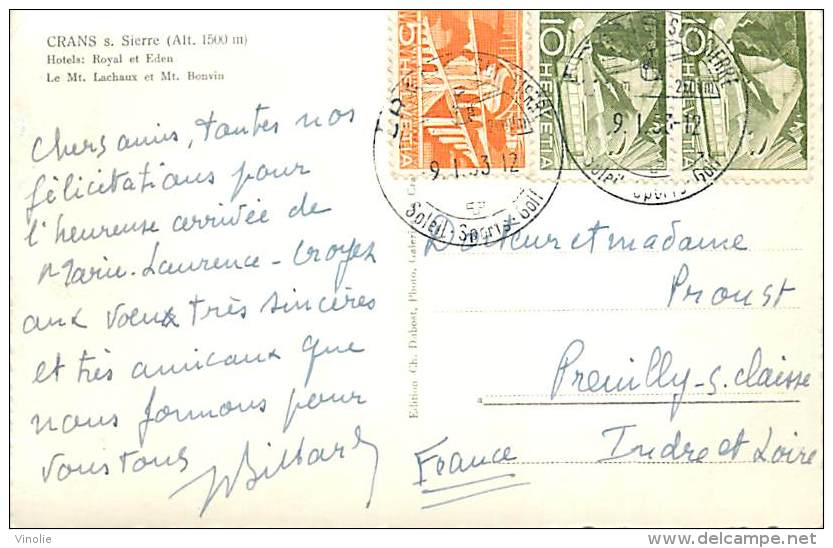 CRANS s. Sierre (Alt. 1500 m)
Hotels: Royal et Eden
Le Mt. Lachaux et Mt. Bonvin
Chers amis, toutes nos
félicitations pour
l'heureuse arrivée de
Marie-Laurence - Croyez
aux voeux très sincères
et très amicaux que
nous formons pour
vous tous
5
HELVETIA
10
HELVETIA
10
HELVETIA
9.1.53-12
Soleil-Sports-Golf
9.1.53-12
Soleil-Sports-Golf
Edition Ch. Dubost, Photo,
Docteur et madame
Proust
Preuilly-s-claisse
Indre et Loire
France
Vinolie
http://www.delcampe.net